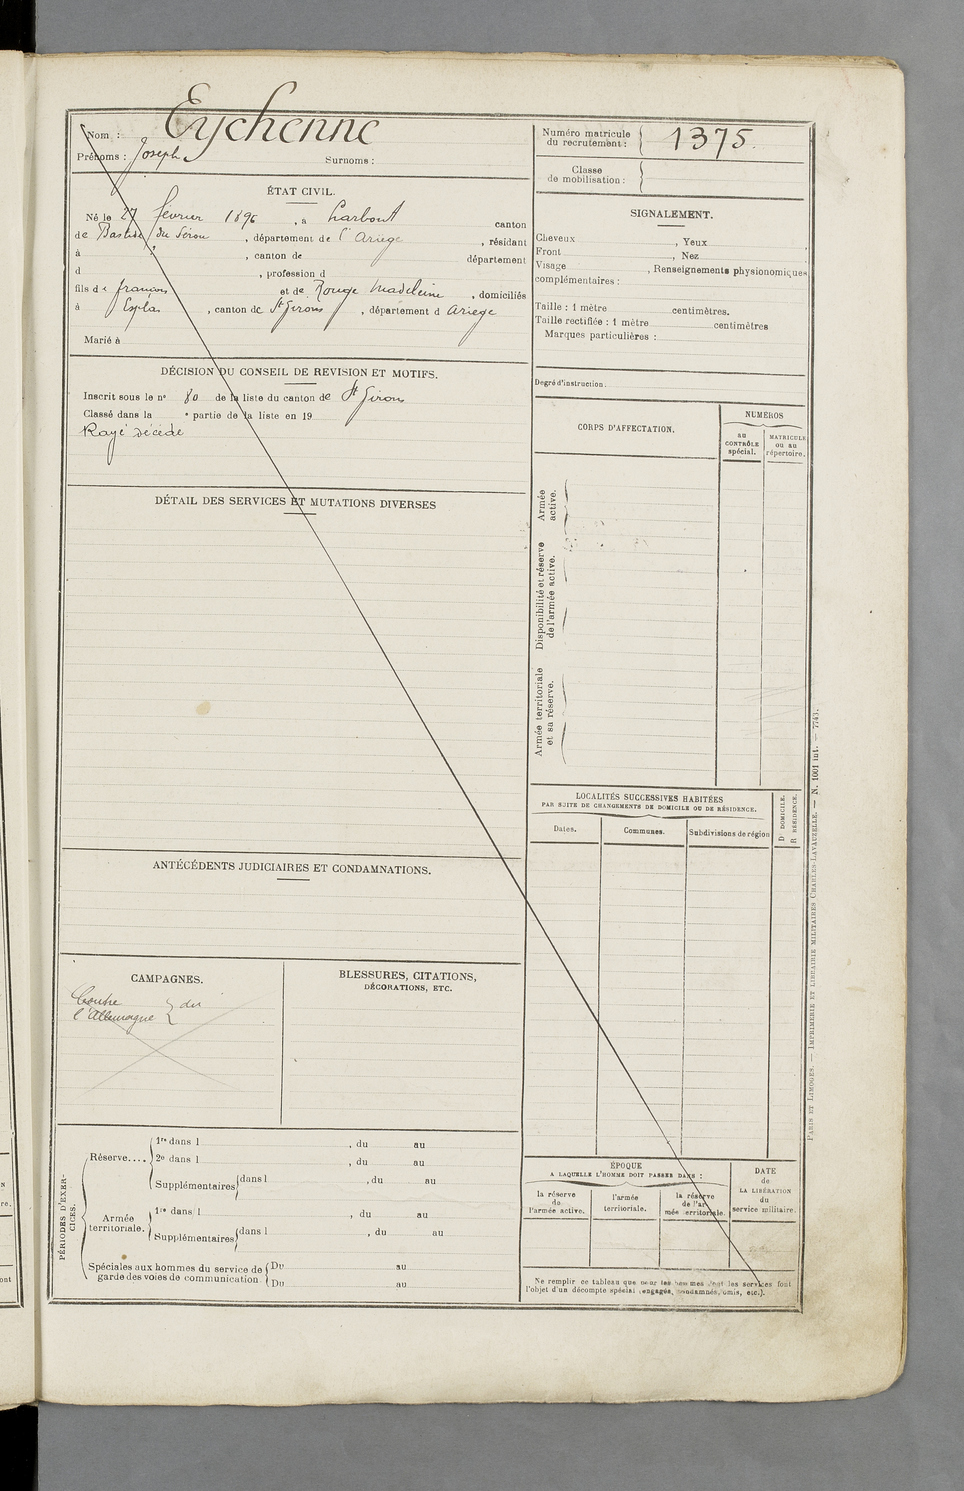 Nom : Eychenne
Prénoms : Joseph Surnoms :
ÉTAT CIVIL.
Né le 27 février 1896, à Larbont canton
de Bastide du Sérou, département de l'Ariège, résidant
à , canton de département
d , profession d
fils de françois et de Rouge Madeleine, domiciliés
à Espla, canton de St Girons, département d Ariège
Marié à
DÉCISION DU CONSEIL DE REVISION ET MOTIFS.
Inscrit sous le n° 80 de la liste du canton de St Girons
Classé dans la e partie de la liste en 19
Rayé décédé
DÉTAIL DES SERVICES ET MUTATIONS DIVERSES
ANTÉCÉDENTS JUDICIAIRES ET CONDAMNATIONS.
CAMPAGNES.
Contre
l'Allemagne } du
BLESSURES, CITATIONS,
DÉCORATIONS, ETC.
PÉRIODES D'EXER-
CICES.
Réserve....
1re dans l , du au
2e dans l , du au
Supplémentaires dans l , du au
Armée
territoriale.
1re dans l , du au
Supplémentaires dans l , du au
Spéciales aux hommes du service de
garde des voies de communication.
Du au
Du au
Numéro matricule
du recrutement : 1375.
Classe
de mobilisation :
SIGNALEMENT.
Cheveux , Yeux
Front , Nez
Visage , Renseignements physionomiques
complémentaires :
Taille : 1 mètre centimètres.
Taille rectifiée : 1 mètre centimètres
Marques particulières :
Degré d'instruction.
CORPS D'AFFECTATION.
NUMÉROS
au
CONTRÔLE
spécial.
MATRICULE
ou au
répertoire.
Armée
active.
Disponibilité et réserve
de l'armée active.
Armée territoriale
et sa réserve.
LOCALITÉS SUCCESSIVES HABITÉES
PAR SUITE DE CHANGEMENTS DE DOMICILE OU DE RÉSIDENCE.
Dates.
Communes.
Subdivisions de région
D DOMICILE.
R RÉSIDENCE.
ÉPOQUE
A LAQUELLE L'HOMME DOIT PASSER DANS :
la réserve
de
l'armée active.
l'armée
territoriale.
la réserve
de l'ar
mée territoriale.
DATE
de
LA LIBÉRATION
du
service militaire.
Ne remplir ce tableau que pour les hommes dont les services font
l'objet d'un décompte spécial (engagés, condamnés, omis, etc.).
PARIS ET LIMOGES. — IMPRIMERIE ET LIBRAIRIE MILITAIRES CHARLES-LAVAUZELLE. — N. 1001 int. — 7743.